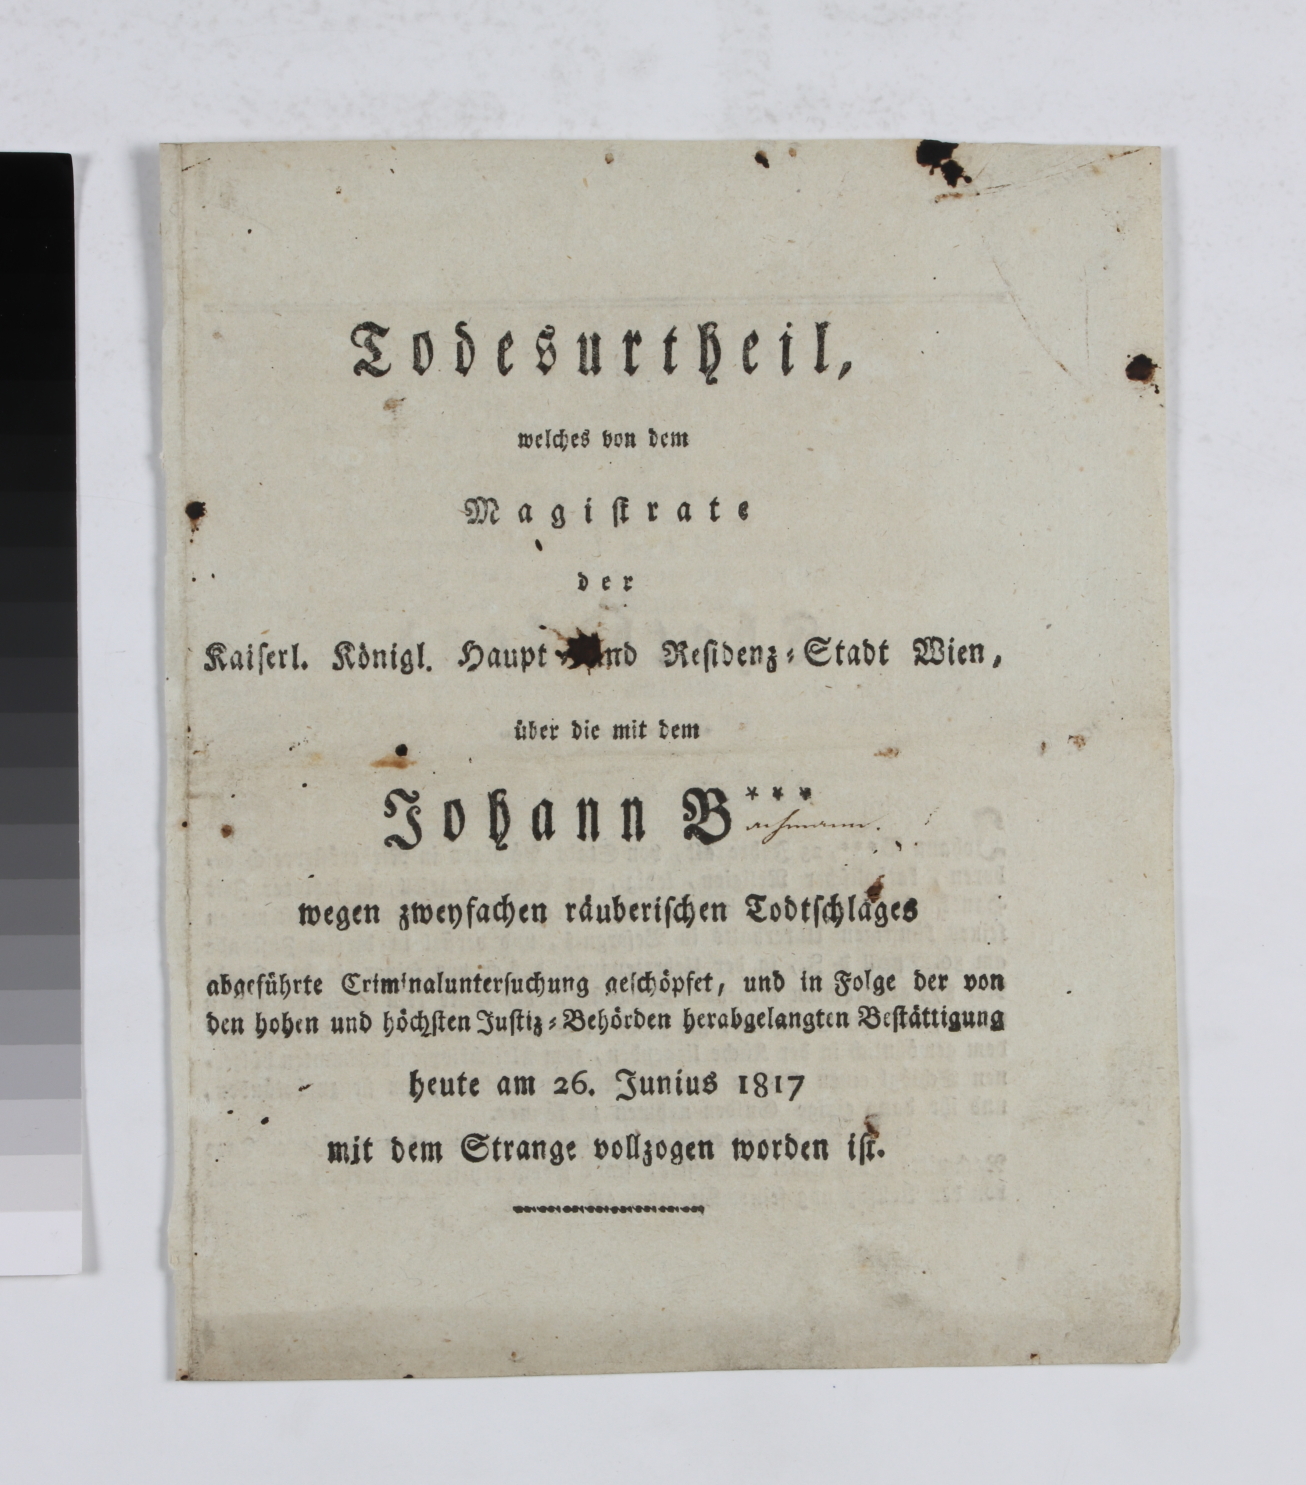 Todesurtheil,
welches von dem
Magistrate
der
Kaiserl. Königl. Haupt- und Residenz-Stadt Wien,
über die mit dem
Johann B***
wegen zweyfachen räuberischen Todtschlages
abgeführte Criminaluntersuchung geschöpfet, und in Folge der von
den hohen und höchsten Justiz-Behörden herabgelangten Bestättigung
heute am 26. Junius 1817
mit dem Strange vollzogen worden ist.